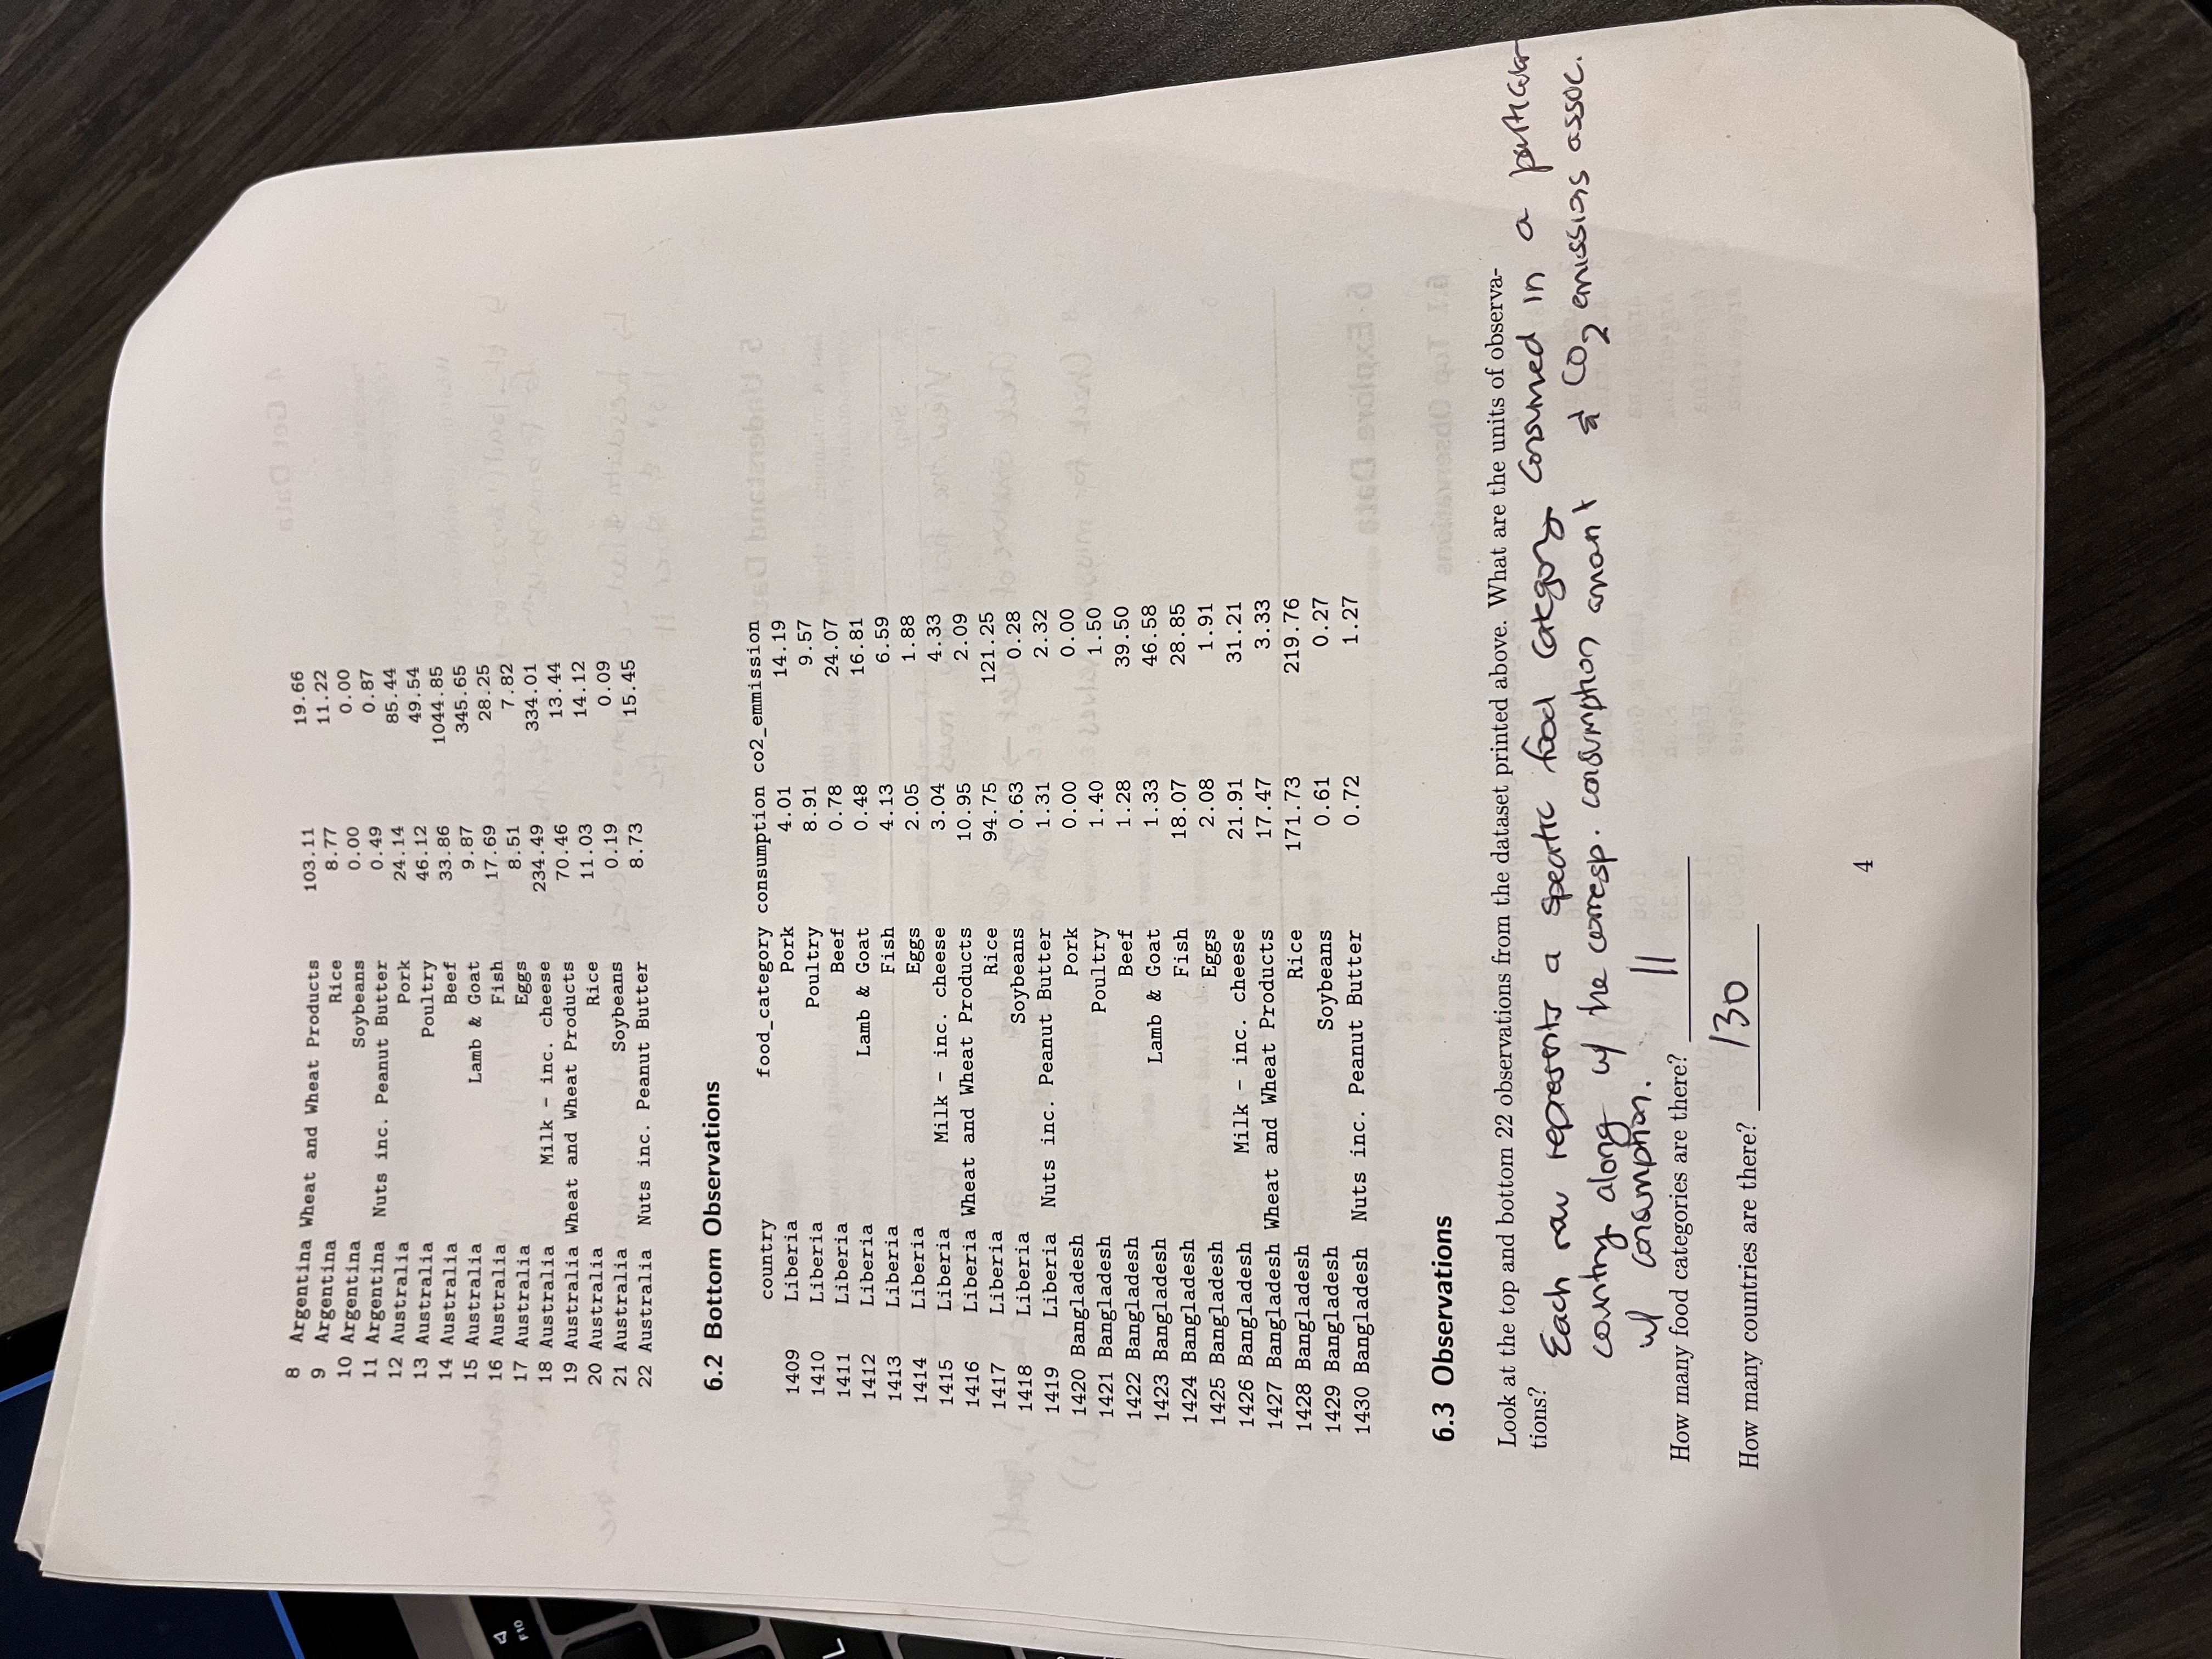 8 Argentina Wheat and Wheat Products 103.11 19.66
9 Argentina Rice 8.77 11.22
10 Argentina Soybeans 0.00 0.00
11 Argentina Nuts inc. Peanut Butter 0.49 0.87
12 Australia Pork 24.14 85.44
13 Australia Poultry 46.12 49.54
14 Australia Beef 33.86 1044.85
15 Australia Lamb & Goat 9.87 345.65
16 Australia Fish 17.69 28.25
17 Australia Eggs 8.51 7.82
18 Australia Milk - inc. cheese 234.49 334.01
19 Australia Wheat and Wheat Products 70.46 13.44
20 Australia Rice 11.03 14.12
21 Australia Soybeans 0.19 0.09
22 Australia Nuts inc. Peanut Butter 8.73 15.45
6.2 Bottom Observations
country food_category consumption co2_emmission
1409 Liberia Pork 4.01 14.19
1410 Liberia Poultry 8.91 9.57
1411 Liberia Beef 0.78 24.07
1412 Liberia Lamb & Goat 0.48 16.81
1413 Liberia Fish 4.13 6.59
1414 Liberia Eggs 2.05 1.88
1415 Liberia Milk - inc. cheese 3.04 4.33
1416 Liberia Wheat and Wheat Products 10.95 2.09
1417 Liberia Rice 94.75 121.25
1418 Liberia Soybeans 0.63 0.28
1419 Liberia Nuts inc. Peanut Butter 1.31 2.32
1420 Bangladesh Pork 0.00 0.00
1421 Bangladesh Poultry 1.40 1.50
1422 Bangladesh Beef 1.28 39.50
1423 Bangladesh Lamb & Goat 1.33 46.58
1424 Bangladesh Fish 18.07 28.85
1425 Bangladesh Eggs 2.08 1.91
1426 Bangladesh Milk - inc. cheese 21.91 31.21
1427 Bangladesh Wheat and Wheat Products 17.47 3.33
1428 Bangladesh Rice 171.73 219.76
1429 Bangladesh Soybeans 0.61 0.27
1430 Bangladesh Nuts inc. Peanut Butter 0.72 1.27
6.3 Observations
Look at the top and bottom 22 observations from the dataset printed above. What are the units of observa-
tions?
Each row represents a specific food category consumed in a particular
country along w/ the corresp. consumption amount & CO2 emissions assoc.
w/ consumption.
How many food categories are there? 11
How many countries are there? 130
4
F10
L